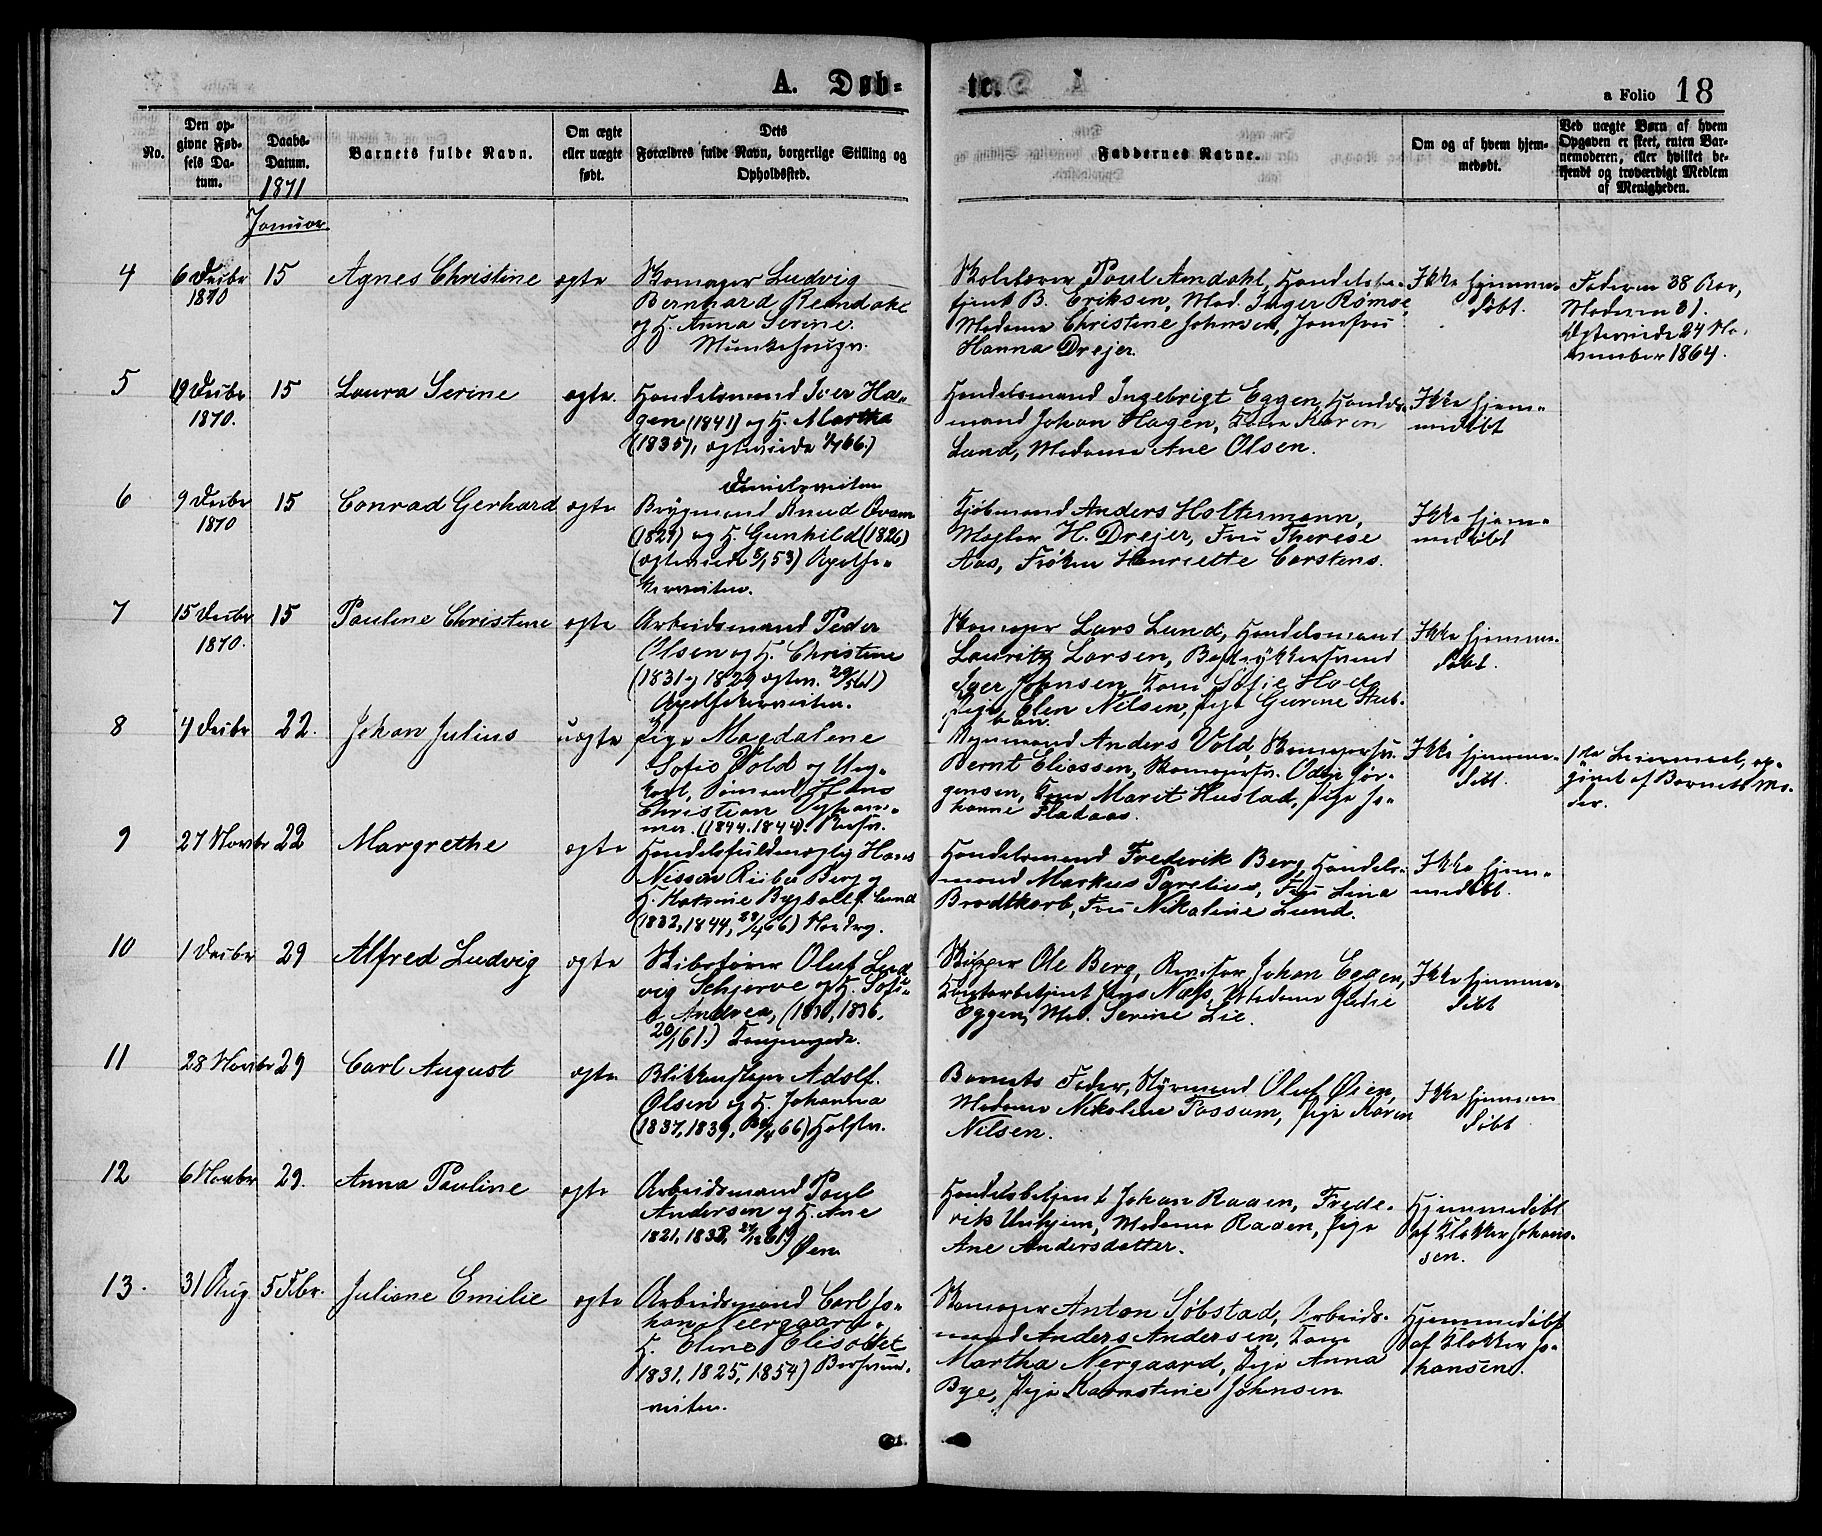 A. Døb-
te.
a Folio 18
No.
Den op-
givne Fød-
sels Da-
tum.
Daabs-
Datum.
1871
Januar
Barnets fulde Navn.
Om ægte
eller uægte
født.
Dets
Forældres fulde Navn, borgerlige Stilling og
Opholdssted.
Faddernes Navne.
Om og af hvem hjem-
medøbt.
Ved uægte Børn af hvem
Opgaven er skeet, enten Bar-
nemoderen, eller hvilket be-
kjendt og troværdigt Medlem
af Menigheden.
4
6 Decbr
1870
15
Agnes Christine
ægte
Skomager Ludvig
Bernhard Remdake
og H. Anna Serine
Skolelærer Paul Amdahl, Handelsbe-
tjent B. Eriksen, Mad. Inger Romoe,
Madame Christine Johnsen, Jomfru
Hanna Drejer.
Ikke hjemme-
døbt.
Faderen 38 Aar,
Moderen 31.
Ægteviede 24 No-
vember 1864.
5
19 Decbr
1870.
15
Laura Serine
ægte.
Handelsmand Iver Ha-
gen (1841) og H. Martha
(1835), ægteviede 66.)
Handelsmand Ingebrigt Eggen, Handels-
mand Johan Hagen, Kone Karen
Lund, Madame Ane Olsen.
Ikke hjem-
medøbt
6
9 Decbr
1870
15
Conrad Gerhard
ægte
Brygmand Knud Kvam
(1829) og H. Gunhild (1826)
(ægteviede 53) Apothe-
kerveiten.
Kjøbmand Anders Holtermann,
Mægler H. Drejer, Fru Therese
Aas, Frøken Henriette Carstens.
Ikke hjem-
medøbt
7
15 Decbr
1870.
15
Pauline Christine
ægte
Arbeidsmand Peder
Olsen og H. Christine
(1831 og 1829 ægtev. 29/5 61)
Apothekerveiten.
Skomager Lars Lund, Handelsmand
Lauritz Larsen, Bogtrykkersvend
Iger Johnsen, Kone Sofie Hoel
Pige Elen Nilsen, Pige Gurine Stub-
ban.
Ikke hjemme-
døbt.
8
4 Decbr
22.
Johan Julius
uægte
Pige Magdalene
Sofie Vold og Ung-
karl, Sømand Hans
Christian
mer. (1844. 1844).
Styrmand Anders Vold, Skomagersv.
Bernt Eliassen, Skomagersv. Odin Jør-
gensen, Kone Marit Hustad, Pige Jo-
hanne Fladaas.
Ikke hjemme-
døbt.
1ste Leiermaal, op-
givet af Barnets Mo-
der.
9
27 Novbr
22
Margrethe
ægte
Handelsfuldmægtig Hans
Nissen Riiber Berg og
H. Katrine f. Lund
(1832, 1844, 66) Nordreg.
Handelsmand Frederik Berg, Handels-
mand Markus Parelius, Fru Lina
Brodtkorb, Fru Nikoline Lund.
Ikke hjem-
medøbt.
10
1 Decbr
29
Alfred Ludvig
ægte
Skibsfører Oluf Lud
vig Schjerve og H. Sofi-
e Andrea, (1830, 1836,
20/1 61.) Kongensgade.
Skipper Ole Berg, Revisor Johan Eggen,
Contorbetjent Jens Næss, Madame Julie
Eggen, Mad. Serine Lie.
Ikke hjemme-
døbt
11
28 Novbr
29
Carl August
ægte
Blikkenslager Adolf
Olsen og H. Johanna
(1837, 1839, 66)
Barnets Fader, Styrmand Oluf Øien,
Madame Nikoline Fossum, Pige Karen
Nilsen.
Ikke hjemme
døbt
12
6 Novbr
29.
Anna Pauline
ægte
Arbeidsmand Paul
Andersen og H. Ane
1821, 1832, 27/12 61)
Øen
Handelsbetjent Johan Raaen, Frede-
rik Unhjem, Madame Raaen, Pige
Ane Andersdatter.
Hjemmedøbt
af Klokker Johans-
sen.
13.
31 Aug.
5 Febr.
Juliane Emilie
ægte
Arbeidsmand Carl Jo-
han Neergaard,
H. Eline Elisabet
1831, 1825, 1854)
veiten.
Skomager Anton Søbstad, Arbeids-
mand Anders Andersen, Kone
Martha Nergaard, Pige Anna
Bye, Pige Karnstine Johnsen
Hjemmedøbt
af Klokker Jo-
hansen.